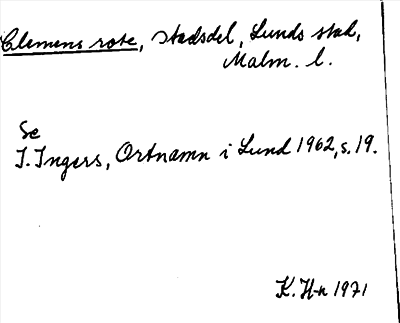 Clemens rote, stadsdel, Lunds stad,
Malm. l.
Se
I. Ingers, Ortnamn i Lund 1962, s. 19.
K. H-n 1971